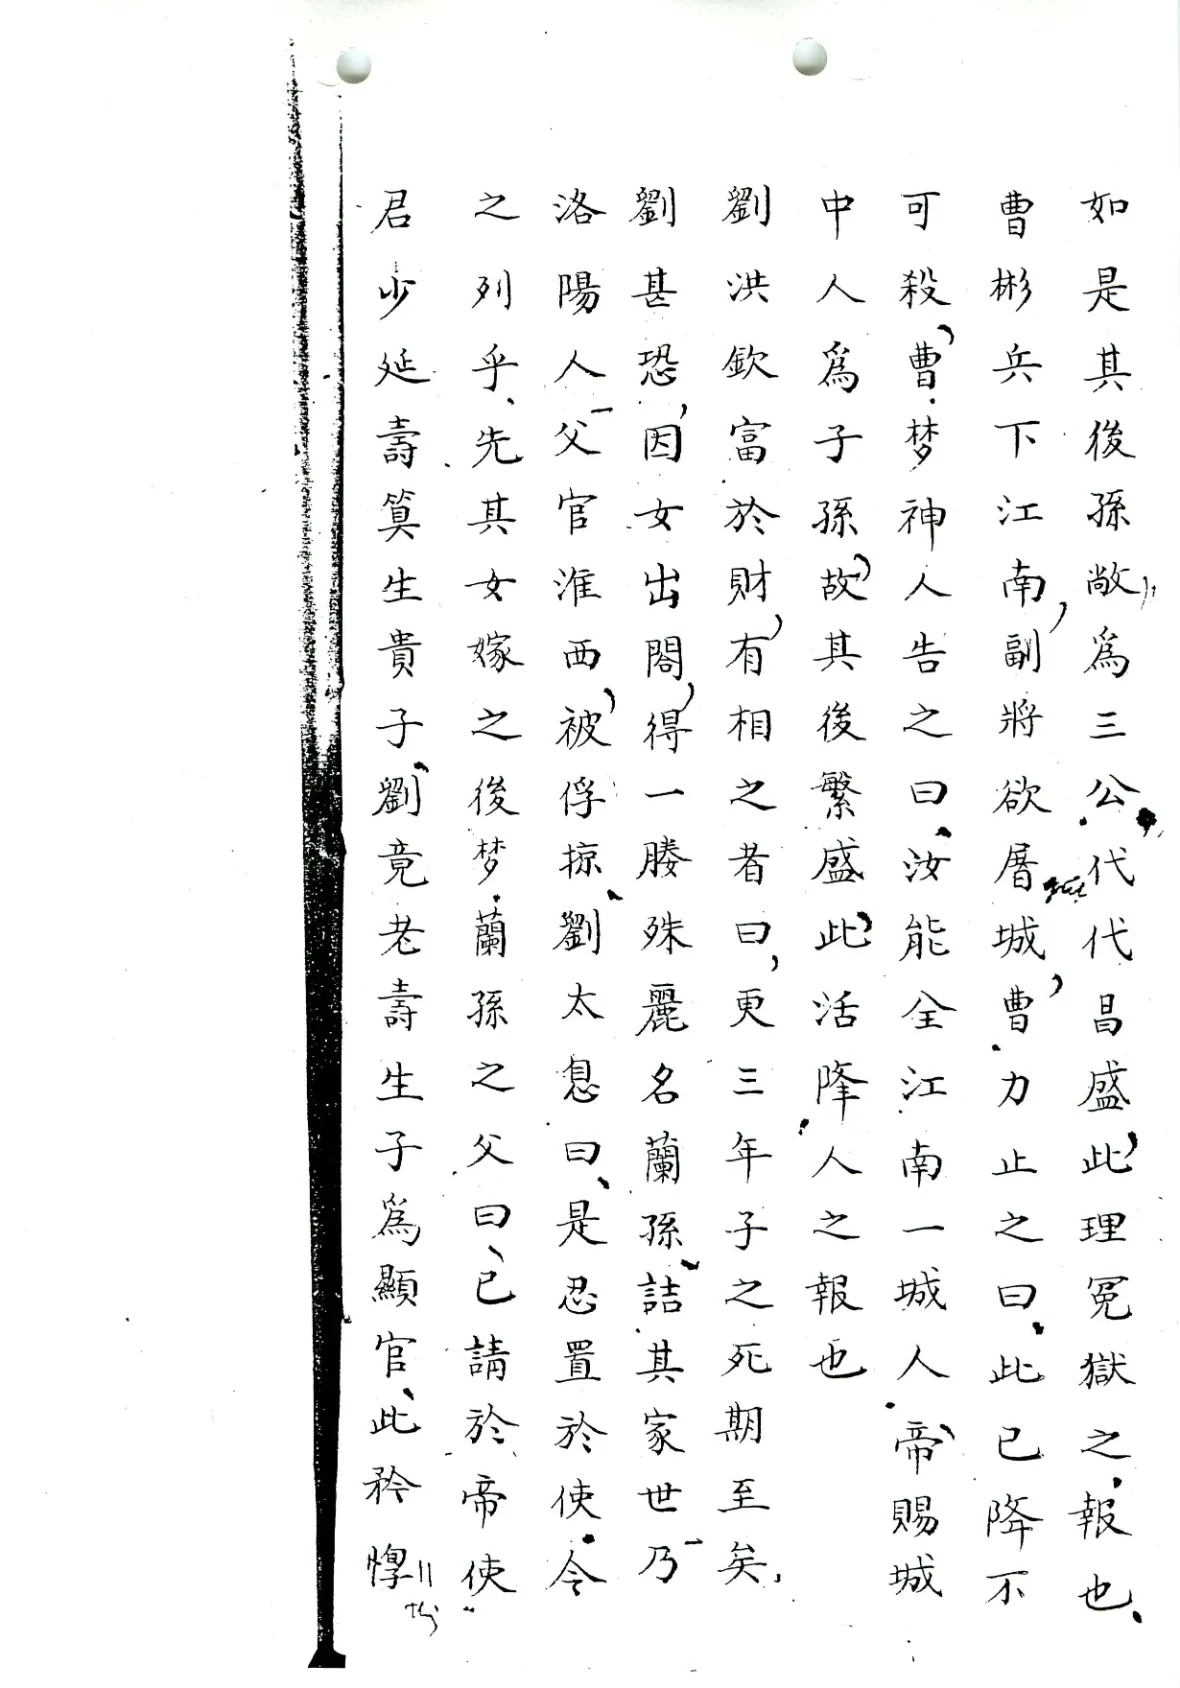 如是其後孫敞爲三公代代昌盛此理冤獄之報也
曹彬兵下江南副將欲屠城曹力止之曰此已降不
可殺曹梦神人告之曰汝能全江南一城人帝賜城
中人爲子孫故其後繁盛此活降人之報也
劉洪欽富於財有相之者曰更三年子之死期至矣
劉甚恐因女出閤得一媵殊麗名蘭孫詰其家世乃
洛陽人父官淮西被俘掠劉太息曰是忍置於使令
之列乎先其女嫁之後梦蘭孫之父曰已請於帝使
君少延壽算生貴子劉竟老壽生子爲顯官此矜惸